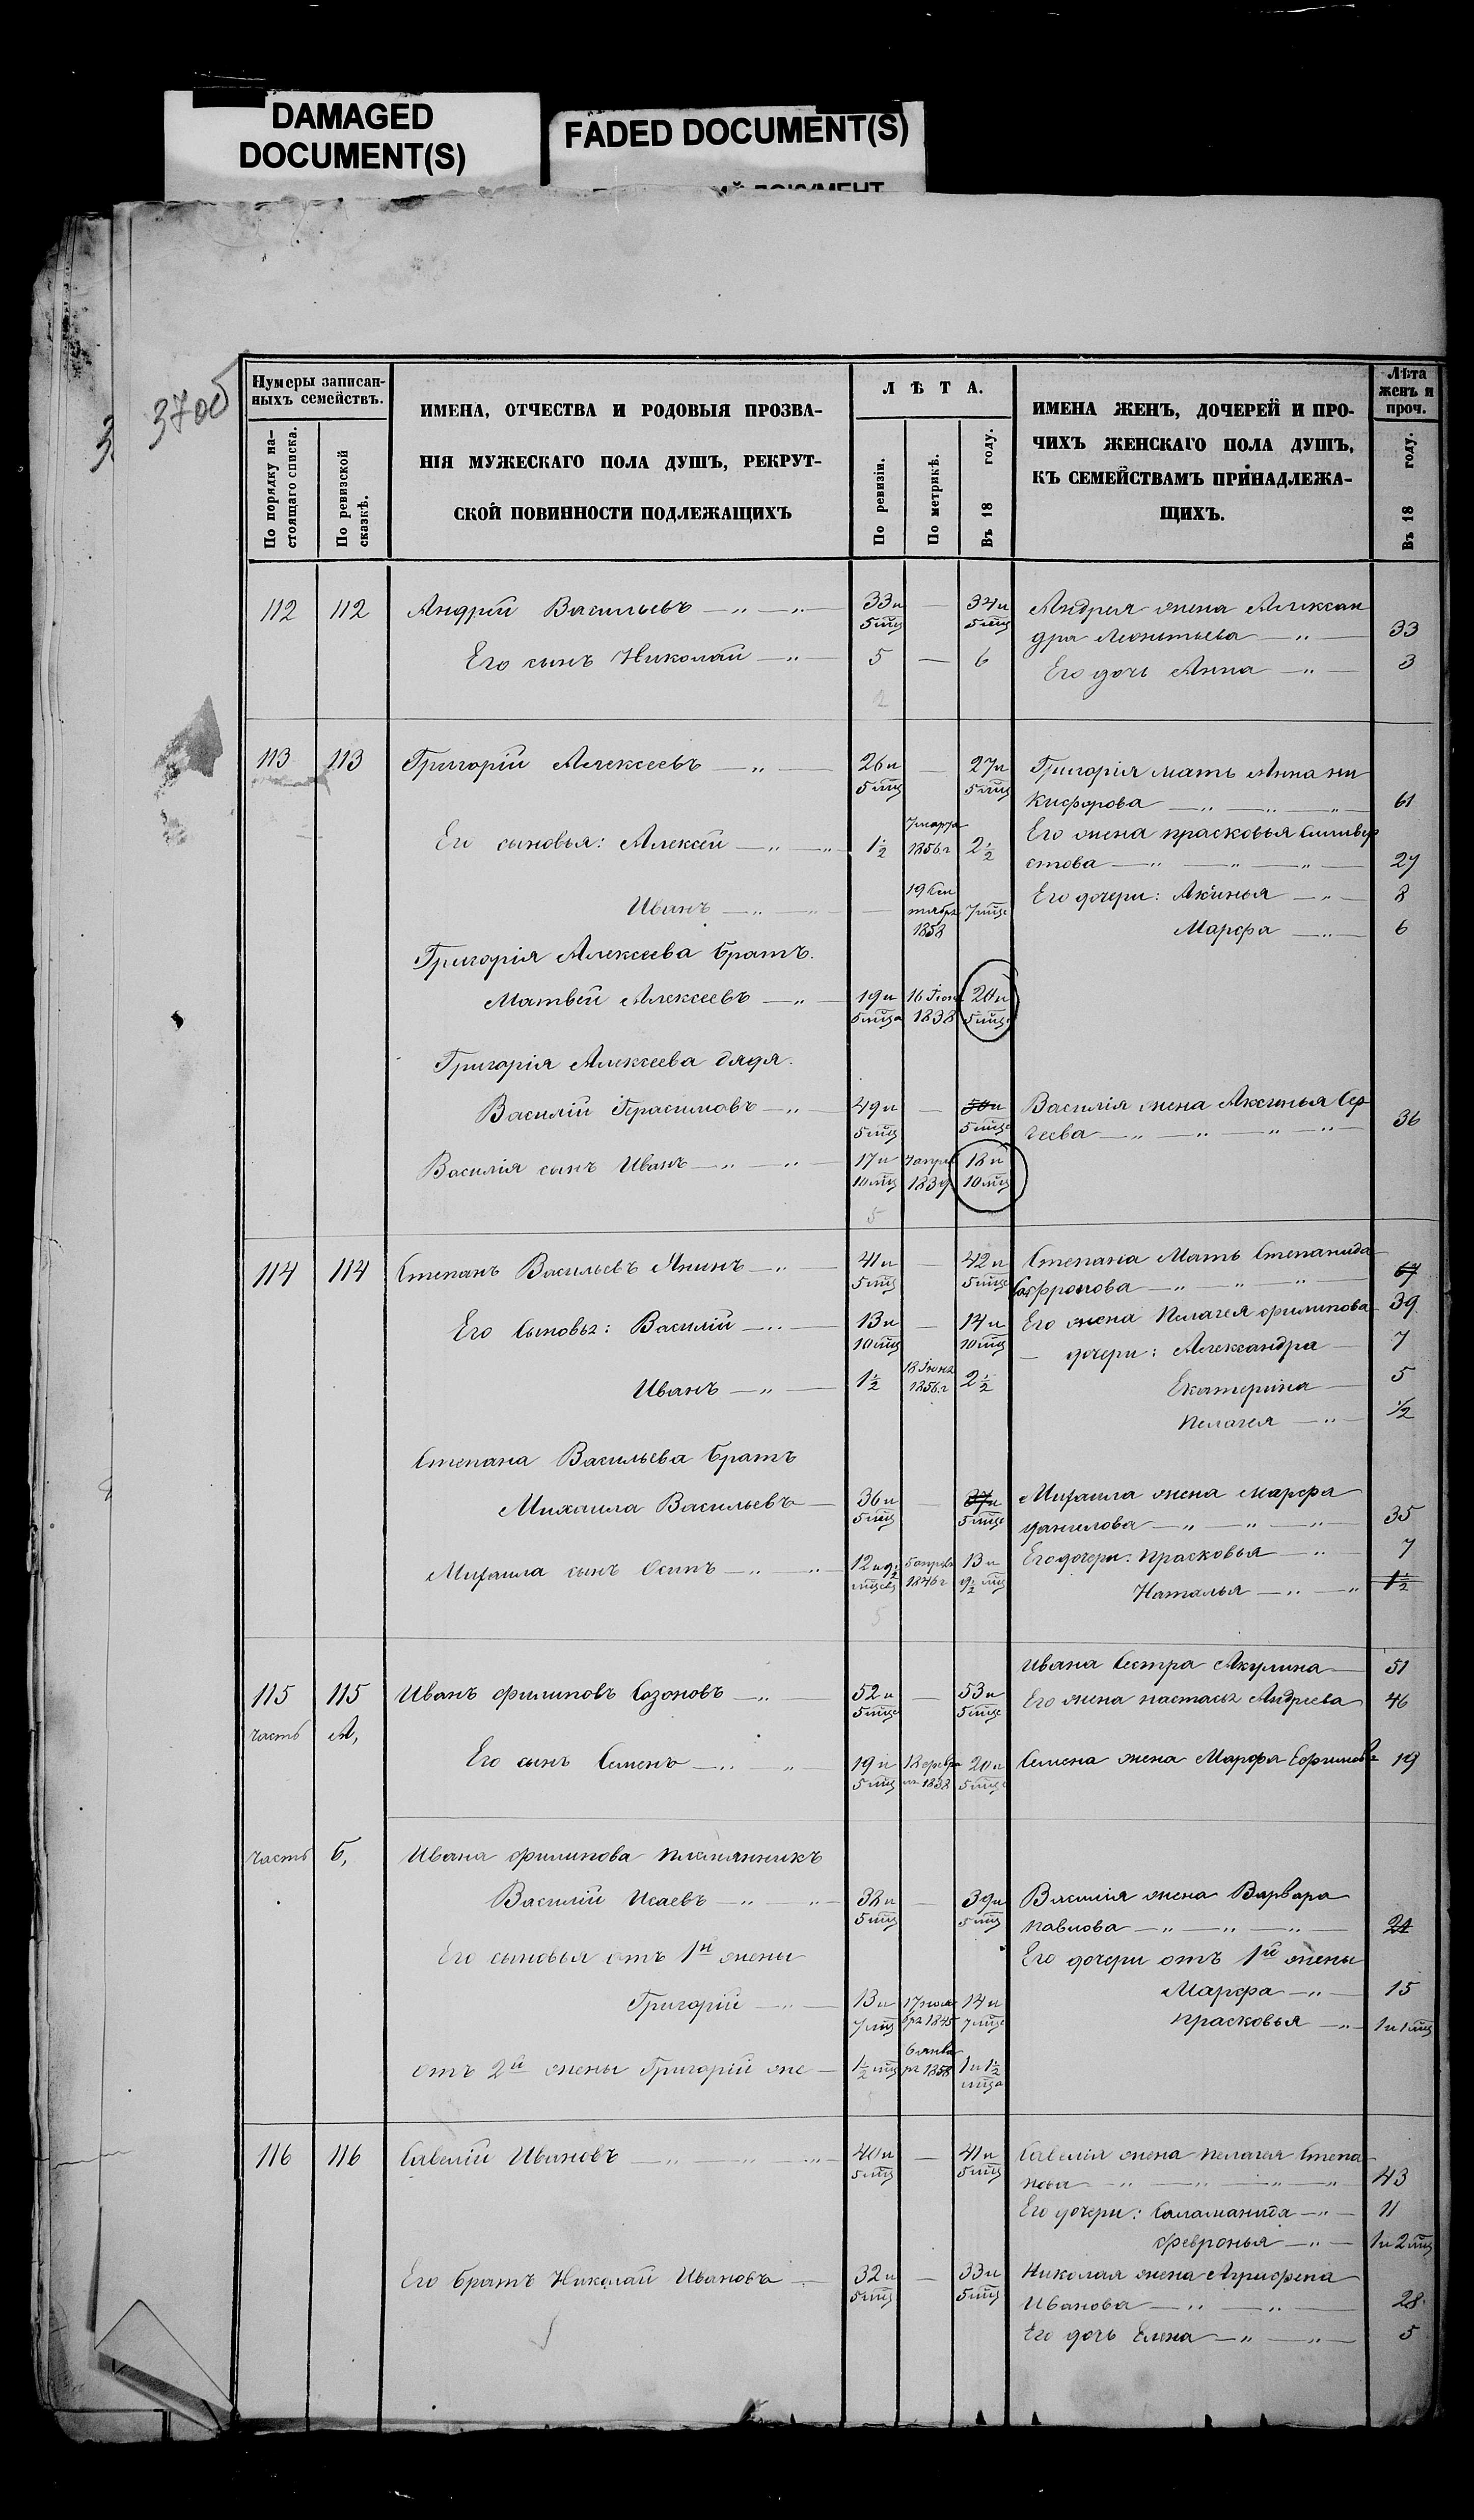 DAMAGED
DOCUMENT(S)
FADED DOCUMENT(S)
37 об
Нумеры записан-
ныхъ семействъ.
По порядку на-
стоящаго списка.
По ревизской
сказкѣ.
ИМЕНА, ОТЧЕСТВА И РОДОВЫЯ ПРОЗВА-
НІЯ МУЖЕСКАГО ПОЛА ДУШЪ, РЕКРУТ-
СКОЙ ПОВИННОСТИ ПОДЛЕЖАЩИХЪ
ЛѢТА.
По ревизіи.
По метрикѣ.
Въ 18 году.
ИМЕНА ЖЕНЪ, ДОЧЕРЕЙ И ПРО-
ЧИХЪ ЖЕНСКАГО ПОЛА ДУШЪ,
КЪ СЕМЕЙСТВАМЪ ПРИНАДЛЕЖА-
ЩИХЪ.
Лѣта
женъ и
проч.
Въ 18 году.
112 112 Андрей Васильевъ — 33 и 5 мѣц — 34 и 5 мѣц Андрея жена Алексан
дра Леонтьева — 33
Его сынъ Николай — 5 — 6 Его дочь Анна — 3
2
113 113 Григорій Алексеевъ — 26 и 5 мѣц — 27 и 5 мѣц Григорія мать Анна ни
кифорова — 61
Его сыновья: Алексей — 1½ 7 марта 1856 г 2½ Его жена прасковья Силивер
стова — 27
Иванъ — 19 Сен тября 1858 7 мѣце Его дочери: Акинья — 8
Марфа — 6
Григорія Алексеева братъ.
Матвей Алексеевъ — 19 и 5 мѣца 16 Іюн 1838 20 и 5 мѣце
Григорія Алексеева дядя.
Василій Герасимовъ — 49 и 5 мѣц — 50 и 5 мѣце Василія жена Аксинья Сер
геева — 36
Василія сынъ Иванъ — 17 и 10 мѣц 7 апре 1839 18 и 10 мѣц
5
114 114 Степанъ Васильевъ Янинъ — 41 и 5 мѣц — 42 и 5 мѣце Степана Мать Степанида
Софронова — 67
Его Сыновья: Василій — 13 и 10 мѣц — 14 и 10 мѣц Его жена Пелагея филипова — 39
— дочери: Александра — 7
Иванъ — 1½ 18 Іюня 1856 г 2½ Екатерина — 5
пелагея — ½
Степана Васильева братъ
Михаила Васильевъ — 36 и 5 мѣц — 37 и 5 мѣце Михаила жена марфа
данилова — 35
Михаила сынъ Осипъ — 12 и 9½ мѣцев 5 апреля 1846 г 13 и 9½ мѣц Его дочери: прасковья — 7
Наталья — 1½
5
Ивана Сестра Акулина — 51
115 115 Иванъ филиповъ Сазоновъ — 52 и 5 мѣце — 53 и 5 мѣце Его жена настасья Андреева 46
часть А,
Его сынъ Семенъ — 19 и 5 мѣц 18 февра ля 1838 20 и 5 мѣце Семена жена Марфа Ефимова 19
часть б, Ивана филипова племянникъ
Василій Исаевъ — 38 и 5 мѣц — 39 и 5 мѣц Василія жена Варвара
павлова — 24
Его сыновья отъ 1й жены Его дочери отъ 1й жены
Григорій — 13 и 7 мѣц 17 ноя бря 1845 14 и 7 мѣце Марфа — 15
прасковья — 1 и 1 мѣц
отъ 2й жены Григорій же — 1½ мѣц 6 янва ря 1858 1 и 1½ мѣца
116 116 Савелій Ивановъ — 40 и 5 мѣц — 41 и 5 мѣц Савелія жена пелагея Степа
нова — 43
Его дочери: Саламанида — 11
февронья — 1 и 2 мѣц
Его братъ Николай Ивановъ — 32 и 5 мѣц — 33 и 5 мѣц Николая жена Агрифена
Иванова — 28
Его дочь Елена — 5